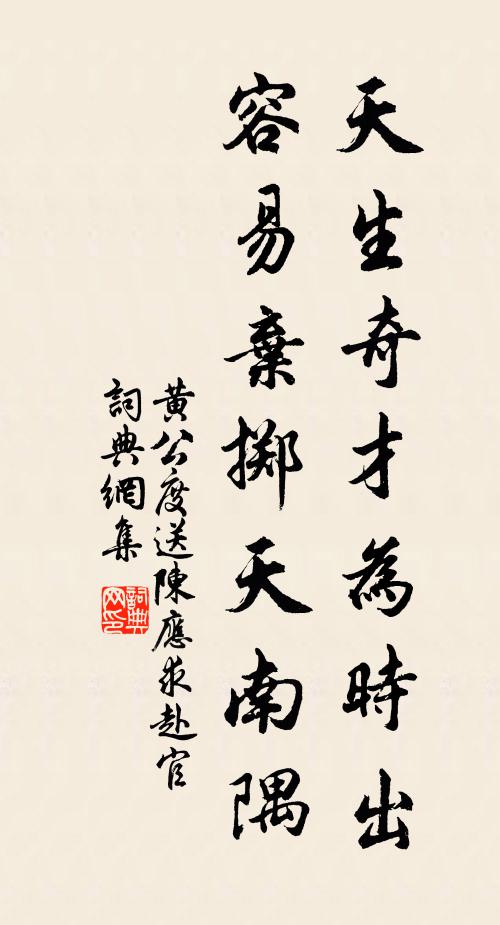 天生奇才為時出
容易棄擲天南隅
黃公度送陳應求赴官
詞典網集
詞典网印